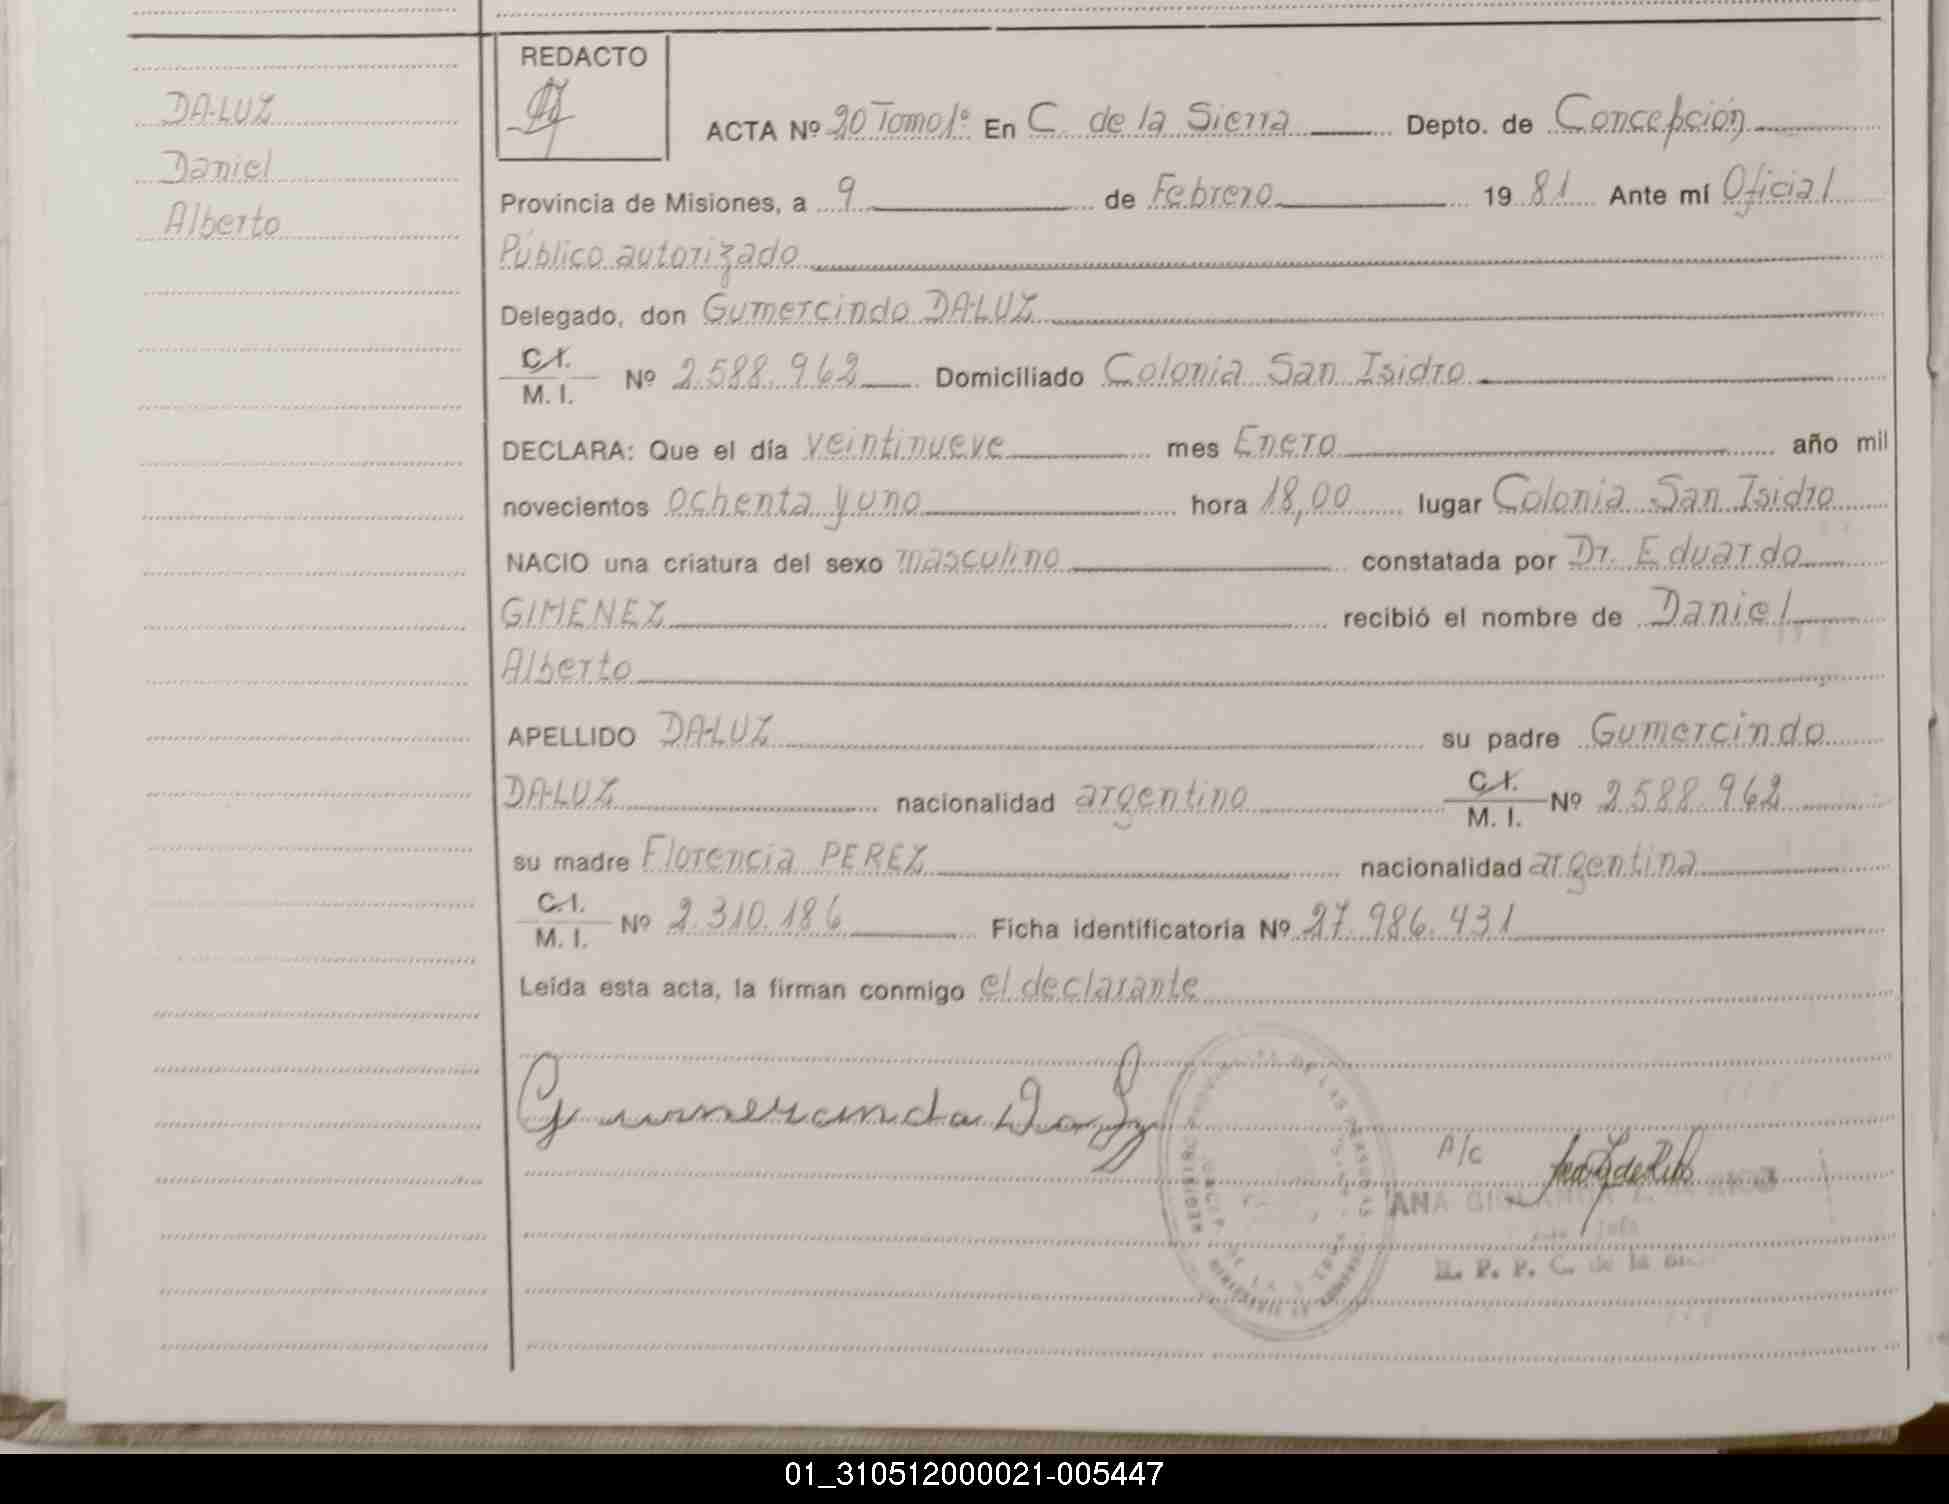 REDACTO
DA-LUZ
Daniel
Alberto
ACTA Nº 20 Tomo 1º En C. de la Sierra Depto. de Concepción
Provincia de Misiones, a 9 de Febrero 19 81 Ante mí Oficial
Público autorizado
Delegado, don Gumercindo DA-LUZ
C.I.
M. I. Nº 2.588.962 Domiciliado Colonia San Isidro
DECLARA: Que el día veintinueve mes Enero año mil
novecientos ochenta y uno hora 18,00 lugar Colonia San Isidro
NACIO una criatura del sexo masculino constatada por Dr. Eduardo
GIMENEZ recibió el nombre de Daniel
Alberto
APELLIDO DA-LUZ su padre Gumercindo
DA-LUZ nacionalidad argentino C.I.
M. I. Nº 2.588.962
su madre Florencia PEREZ nacionalidad argentina
C.I.
M. I. Nº 2.310.186 Ficha identificatoria Nº 27.986.431
Leída esta acta, la firman conmigo el declarante
A/c
ANA
R. P. P. C. de la
01_310512000021-005447